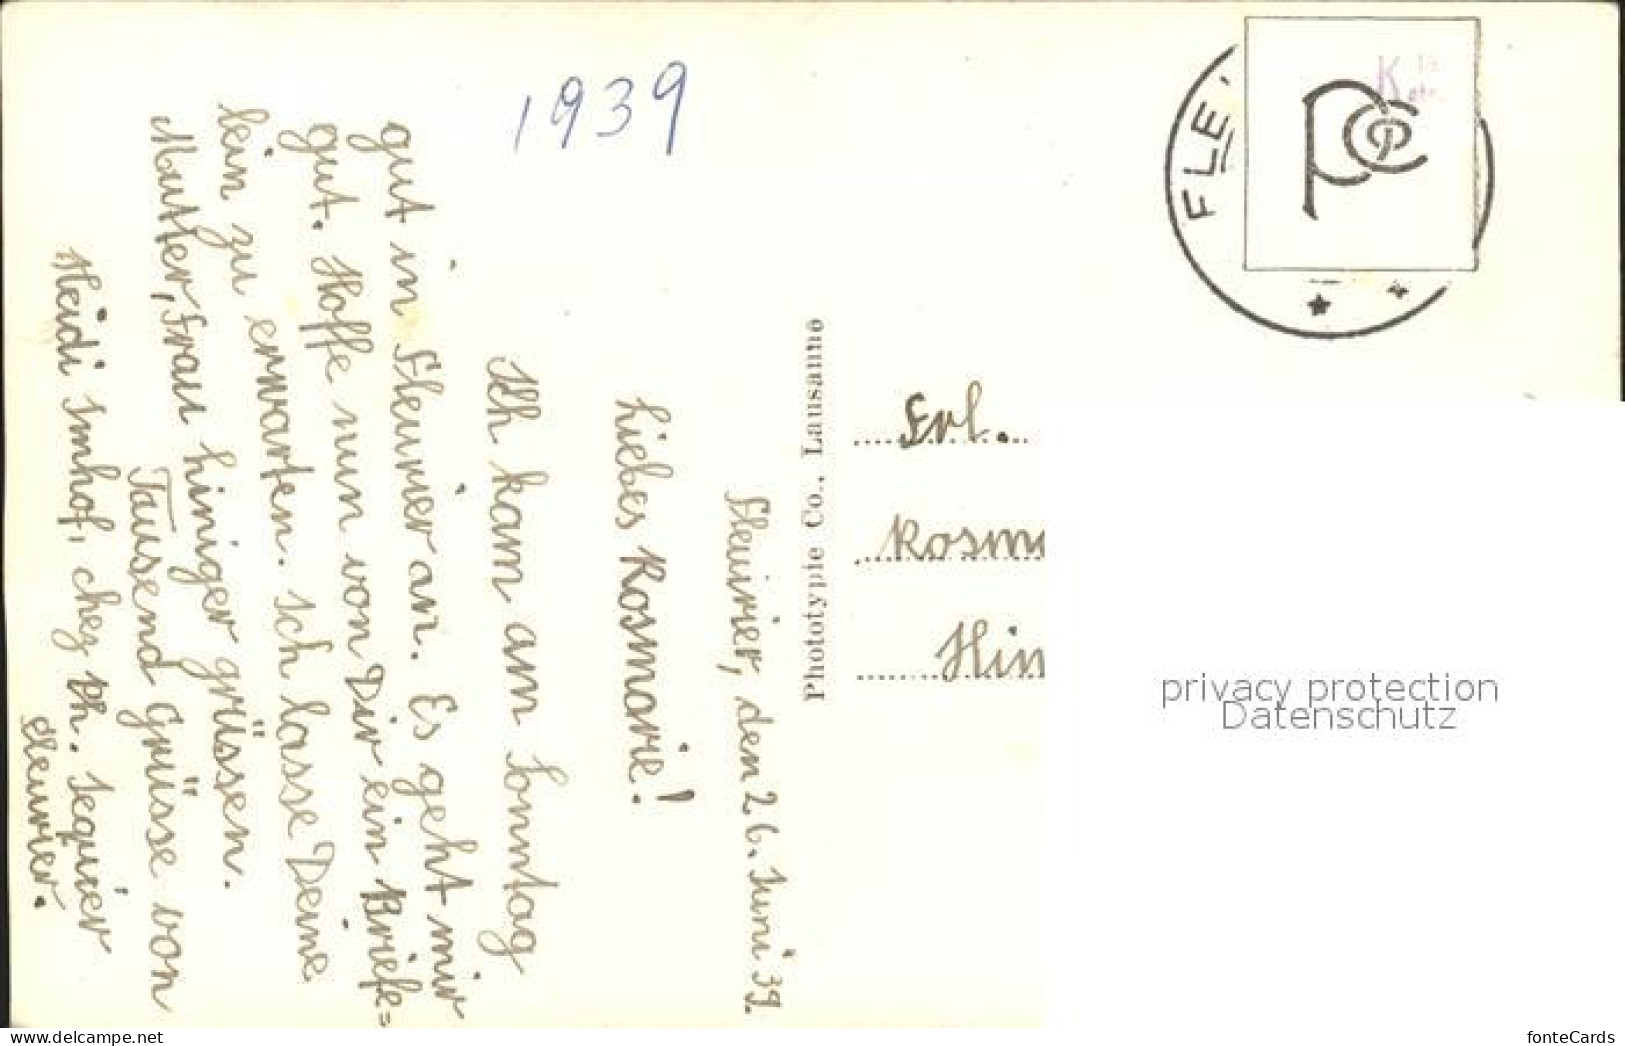 1939
Fleurier, den 26. Juni 39.
Liebes Rosmarie!
Ich kam am Sonntag
gut in Fleurier an. Es geht mir
gut. Hoffe nun von Dir ein Briefe=
lein zu erwarten. Ich lasse Deine
Mutter, Frau Hiniger grüssen.
Tausend Grüsse von
Heidi Imhof, chez Ph. Jequier
Fleurier.
Phototypie Co., Lausanne
FLE
K
PCCP
Frl.
Rosma
Hin
privacy protection
Datenschutz
www.delcampe.net
fonteCards